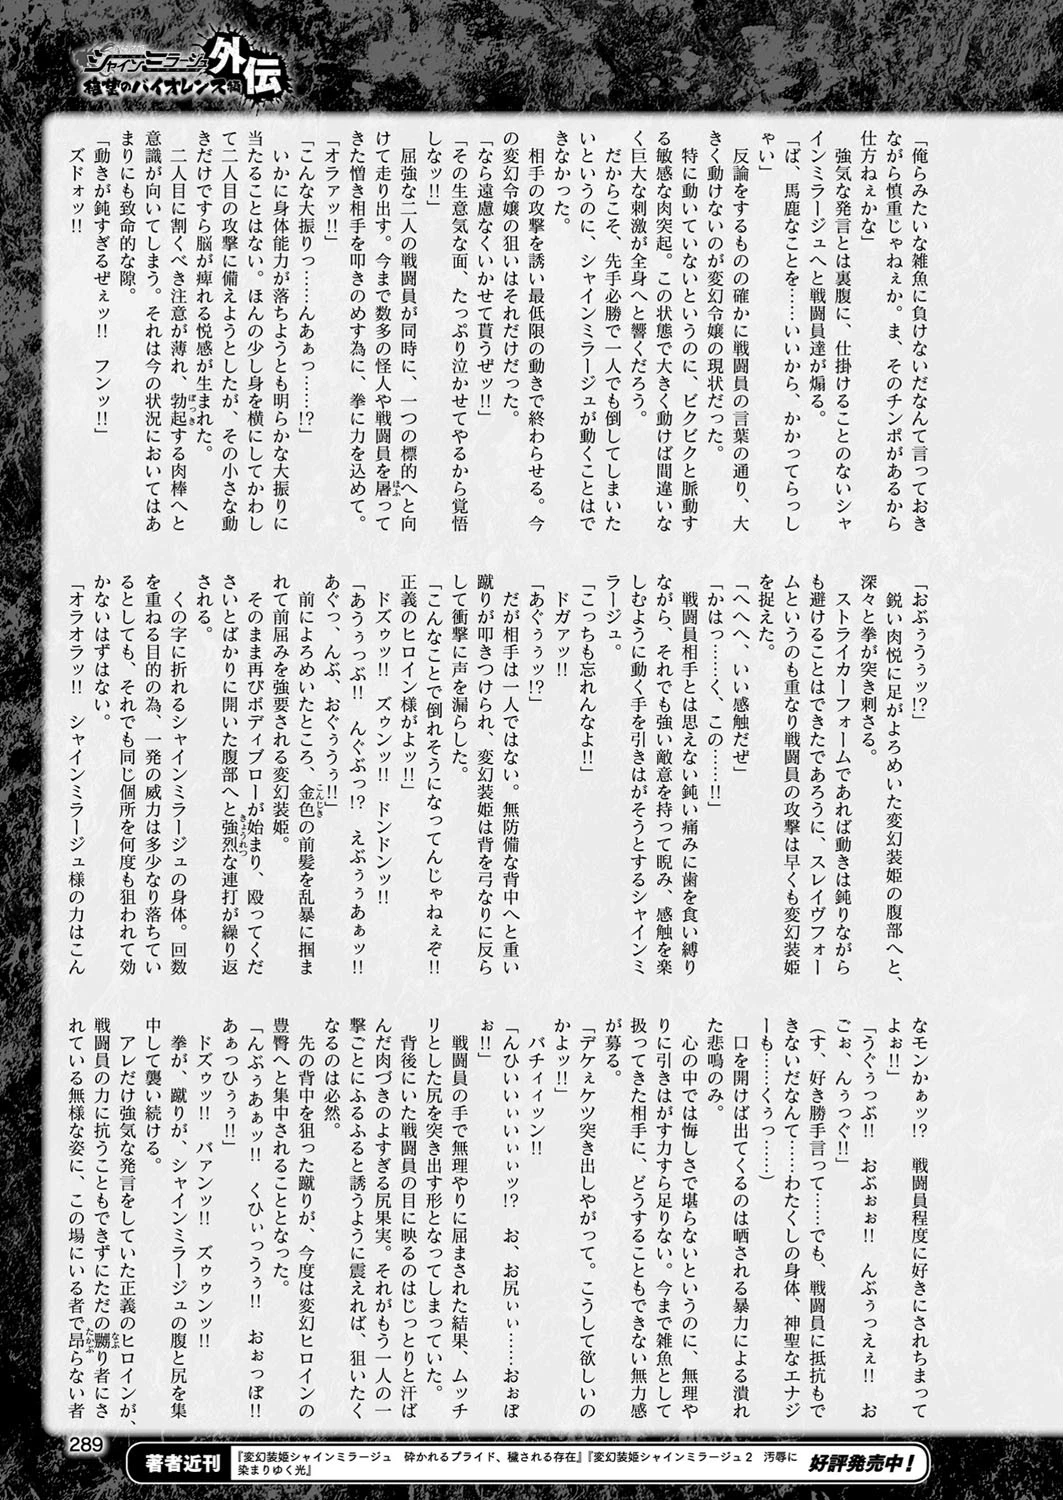 シャインミラージュ外伝
バイオレンス
「俺らみたいな雑魚に負けないだなんて言っておき
ながら慎重じゃねぇか。ま、そのチンポがあるから
仕方ねぇかな」
強気な発言とは裏腹に、仕掛けることのないシャ
インミラージュへと戦闘員達が煽る。
「ば、馬鹿なことを……いいから、かかってらっし
ゃい」
反論をするものの確かに戦闘員の言葉の通り、大
きく動けないのが変幻令嬢の現状だった。
特に動いていないというのに、ビクビクと脈動す
る敏感な肉突起。この状態で大きく動けば間違いな
く巨大な刺激が全身へと響くだろう。
だからこそ、先手必勝で一人でも倒してしまいた
いというのに、シャインミラージュが動くことはで
きなかった。
相手の攻撃を誘い最低限の動きで終わらせる。今
の変幻令嬢の狙いはそれだけだった。
「なら遠慮なくいかせて貰うぜッ!!」
「その生意気な面、たっぷり泣かせてやるから覚悟
しなッ!!」
屈強な二人の戦闘員が同時に、一つの標的へと向
けて走り出す。今まで数多の怪人や戦闘員を屠って
きた憎き相手を叩きのめす為に、拳に力を込めて。
「オラァッ!!」
「こんな大振りっ……んあぁっ……!?」
いかに身体能力が落ちようとも明らかな大振りに
当たることはない。ほんの少し身を横にしてかわし
て二人目の攻撃に備えようとしたが、その小さな動
きだけですら脳が痺れる悦感が生まれた。
二人目に割くべき注意が薄れ、勃起する肉棒へと
意識が向いてしまう。それは今の状況においてはあ
まりにも致命的な隙。
「動きが鈍すぎるぜぇッ!!　フンッ!!」
ズドォッ!!
「おぶぅうぅッ!?」
鋭い肉悦に足がよろめいた変幻装姫の腹部へと、
深々と拳が突き刺さる。
ストライカーフォームであれば動きは鈍りながら
も避けることはできたであろうに、スレイヴフォー
ムというのも重なり戦闘員の攻撃は早くも変幻装姫
を捉えた。
「へへへ、いい感触だぜ」
「かはっ……く、この……!!」
戦闘員相手とは思えない鈍い痛みに歯を食い縛り
ながら、それでも強い敵意を持って睨み、感触を楽
しむように動く手を引きはがそうとするシャインミ
ラージュ。
「こっちも忘れんなよ!!」
ドガァッ!!
「あぐぅぅッ!?」
だが相手は一人ではない。無防備な背中へと重い
蹴りが叩きつけられ、変幻装姫は背を弓なりに反ら
して衝撃に声を漏らした。
「こんなことで倒れそうになってんじゃねぇぞ!!
正義のヒロイン様がよッ!!」
ドズゥッ!!　ズゥンッ!!　ドンドンッ!!
「あうぅっぶ!!　んぐぶっ!?　えぶぅぅあぁッ!!
あぐっ、んぶ、おぐぅうぅ!!」
前によろめいたところ、金色の前髪を乱暴に掴ま
れて前屈みを強要される変幻装姫。
そのまま再びボディブローが始まり、殴ってくだ
さいとばかりに開いた腹部へと強烈な連打が繰り返
される。
くの字に折れるシャインミラージュの身体。回数
を重ねる目的の為、一発の威力は多少なり落ちてい
るとしても、それでも同じ個所を何度も狙われて効
かないはずはない。
「オラオラッ!!　シャインミラージュ様の力はこん
なモンかぁッ!?　戦闘員程度に好きにされちまって
よぉ!!」
「うぐぅっぶ!!　おぶぉぉ!!　んぶぅっえぇ!!　お
ごぉ、んぅっぐ!!」
(す、好き勝手言って……でも、戦闘員に抵抗もで
きないだなんて……わたくしの身体、神聖なエナジ
ーも……くぅっ……)
口を開けば出てくるのは晒される暴力による潰れ
た悲鳴のみ。
心の中では悔しさで堪らないというのに、無理や
りに引きはがす力すら足りない。今まで雑魚として
扱ってきた相手に、どうすることもできない無力感
が募る。
「デケぇケツ突き出しやがって。こうして欲しいの
かよッ!!」
バチィィツン!!
「んひいいぃいぃぃッ!?　お、お尻ぃぃ……おぉぼ
ぉ!!」
戦闘員の手で無理やりに屈まされた結果、ムッチ
リとした尻を突き出す形となってしまっていた。
背後にいた戦闘員の目に映るのはじっとりと汗ば
んだ肉づきのよすぎる尻果実。それがもう一人の一
撃ごとにふるふると誘うように震えれば、狙いたく
なるのは必然。
先の背中を狙った蹴りが、今度は変幻ヒロインの
豊臀へと集中されることとなった。
「んぶぅあぁッ!!　くひぃっうぅ!!　おぉっぼ!!
あぁっひぅぅ!!」
ドズゥッ!!　バァンッ!!　ズゥゥンッ!!
拳が、蹴りが、シャインミラージュの腹と尻を集
中して襲い続ける。
アレだけ強気な発言をしていた正義のヒロインが、
戦闘員の力に抗うこともできずにただの嬲り者にさ
れている無様な姿に、この場にいる者で昂らない者
289
著者近刊
『変幻装姫シャインミラージュ　砕かれるプライド、穢される存在』『変幻装姫シャインミラージュ2　汚辱に
染まりゆく光』
好評発売中！